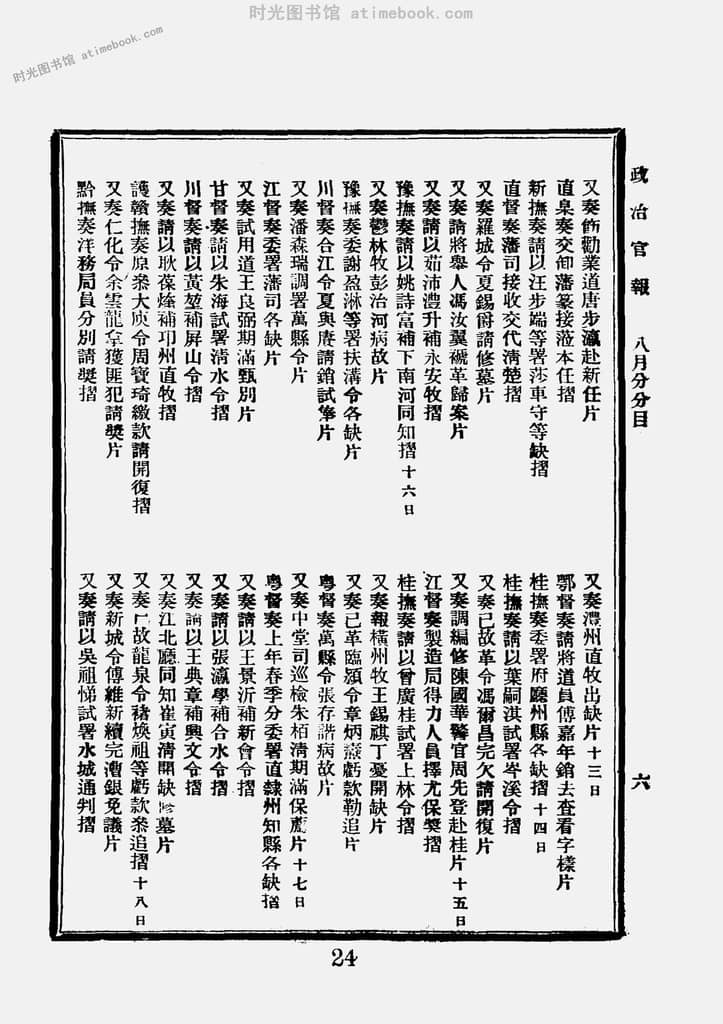 时光图书馆 atimebook.com
时光图书馆 atimebook.com
政治官報 八月分分目 六
又奏飭勸業道唐步瀛赴新任片
直臬奏交卸藩篆接涖本任摺
新撫奏請以汪步端等署莎車守等缺摺
直督奏藩司接收交代清楚摺
又奏羅城令夏錫爵請修墓片
又奏請將舉人馮汝翼褫革歸案片
又奏請以茹沛澧升補永安牧摺
豫撫奏請以姚詩富補下南河同知摺十六日
又奏鬱林牧彭治河病故片
豫撫奏委謝盈淋等署扶溝令各缺片
川督奏合江令夏與賡請銷試俸片
又奏潘森瑞調署萬縣令片
江督奏委署藩司各缺片
又奏試用道王良弼期滿甄別片
甘督奏請以朱海試署清水令摺
川督奏請以黃堃補屏山令摺
又奏請以耿葆煃補邛州直牧摺
護贛撫奏原參大庾令周寶琦繳款請開復摺
又奏仁化令余雲龍拿獲匪犯請獎片
黔撫奏洋務局員分別請獎摺
又奏澧州直牧出缺片十三日
鄂督奏請將道員傅嘉年銷去查看字樣片
桂撫奏委署府廳州縣各缺摺十四日
桂撫奏請以葉嗣淇試署岑溪令摺
又奏已故革令馮爾昌完欠請開復片
又奏調編修陳國華警官周先登赴桂片十五日
江督奏製造局得力人員擇尤保獎摺
桂撫奏請以曾廣桂試署上林令摺
又奏報橫州牧王錫祺丁憂開缺片
又奏已革臨潁令章炳燾虧款勒追片
粵督奏萬縣令張存諧病故片
又奏中堂司巡檢朱栢清期滿保薦片十七日
粵督奏上年春季分委署直隸州知縣各缺摺
又奏請以王景沂補新會令摺
又奏請以張瀛學補合水令摺
又奏請以王典章補興文令摺
又奏江北廳同知崔寅清開缺修墓片
又奏已故龍泉令褚煥祖等虧款參追摺十八日
又奏新城令傅維新續完漕銀免議片
又奏請以吳祖悌試署水城通判摺
24